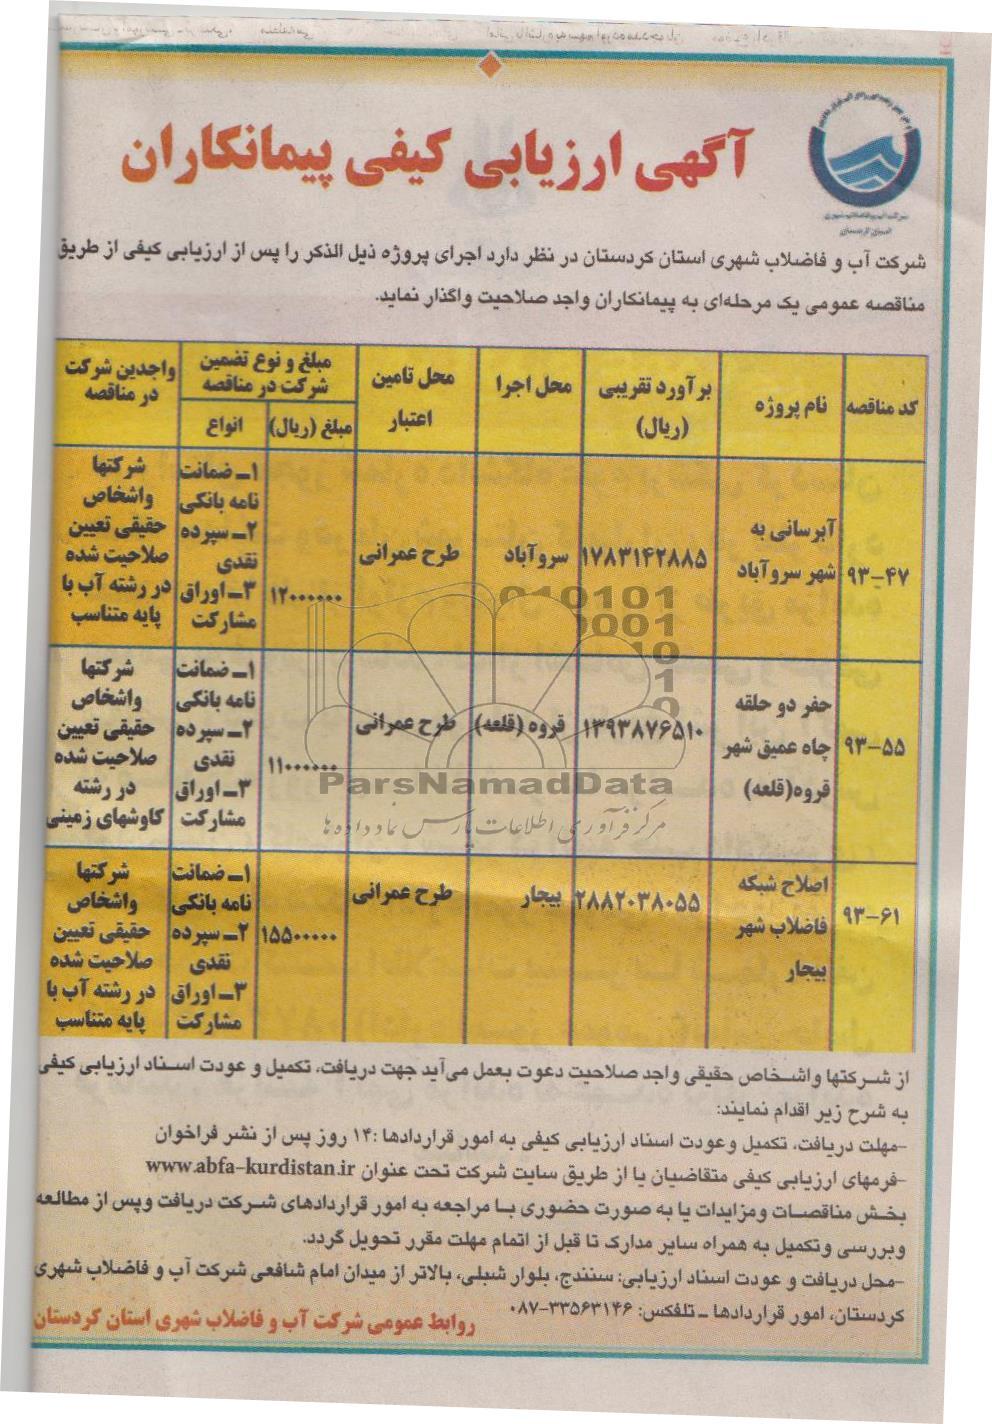 آگهی ارزیابی کیفی پیمانکاران
شرکت آب و فاضلاب شهری
استان کردستان
شرکت آب و فاضلاب شهری استان کردستان در نظر دارد اجرای پروژه ذیل الذکر را پس از ارزیابی کیفی از طریق
مناقصه عمومی یک مرحله‌ای به پیمانکاران واجد صلاحیت واگذار نماید.
کد مناقصه
نام پروژه
برآورد تقریبی
(ریال)
محل اجرا
محل تامین
اعتبار
مبلغ و نوع تضمین
شرکت در مناقصه
مبلغ (ریال)
انواع
واجدین شرکت
در مناقصه
۹۳-۴۷
آبرسانی به
شهر سروآباد
۱۷۸۳۱۴۲۸۸۵
سروآباد
طرح عمرانی
۱۲۰۰۰۰۰۰
۱ــ ضمانت
نامه بانکی
۲ــ سپرده
نقدی
۳ــ اوراق
مشارکت
شرکتها
واشخاص
حقیقی تعیین
صلاحیت شده
در رشته آب با
پایه متناسب
۹۳-۵۵
حفر دو حلقه
چاه عمیق شهر
قروه(قلعه)
۱۳۹۳۸۷۶۵۱۰
قروه (قلعه)
طرح عمرانی
۱۱۰۰۰۰۰۰
۱ــ ضمانت
نامه بانکی
۲ــ سپرده
نقدی
۳ــ اوراق
مشارکت
شرکتها
واشخاص
حقیقی تعیین
صلاحیت شده
در رشته
کاوشهای زمینی
۹۳-۶۱
اصلاح شبکه
فاضلاب شهر
بیجار
۲۸۸۲۰۳۸۰۵۵
بیجار
طرح عمرانی
۱۵۵۰۰۰۰۰
۱ــ ضمانت
نامه بانکی
۲ــ سپرده
نقدی
۳ــ اوراق
مشارکت
شرکتها
واشخاص
حقیقی تعیین
صلاحیت شده
در رشته آب با
پایه متناسب
ParsNamadData
مرکز فرآوری اطلاعات پارس نماد داده ها
از شرکتها واشخاص حقیقی واجد صلاحیت دعوت بعمل می‌آید جهت دریافت، تکمیل و عودت اسناد ارزیابی کیفی
به شرح زیر اقدام نمایند:
-مهلت دریافت، تکمیل وعودت اسناد ارزیابی کیفی به امور قراردادها :۱۴ روز پس از نشر فراخوان
-فرمهای ارزیابی کیفی متقاضیان یا از طریق سایت شرکت تحت عنوان www.abfa-kurdistan.ir
بخش مناقصات ومزایدات یا به صورت حضوری با مراجعه به امور قراردادهای شرکت دریافت وپس از مطالعه
وبررسی وتکمیل به همراه سایر مدارک تا قبل از اتمام مهلت مقرر تحویل گردد.
-محل دریافت و عودت اسناد ارزیابی: سنندج، بلوار شبلی، بالاتر از میدان امام شافعی شرکت آب و فاضلاب شهری
کردستان، امور قراردادها ـ تلفکس: ۳۳۵۶۳۱۴۶-۰۸۷
روابط عمومی شرکت آب و فاضلاب شهری استان کردستان